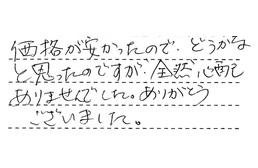 価格が安かったので、どうかな
と思ったのですが、全然心配
ありませんでした。ありがとう
ございました。